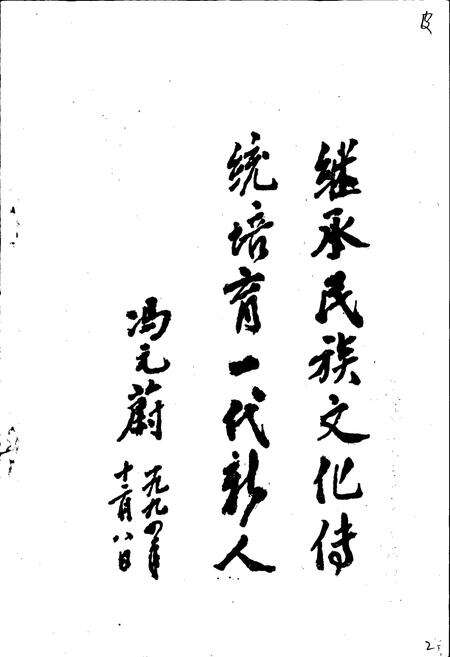 继承民族文化传
统培育一代新人
冯元蔚
一九九四年
十二月八日
皮
2